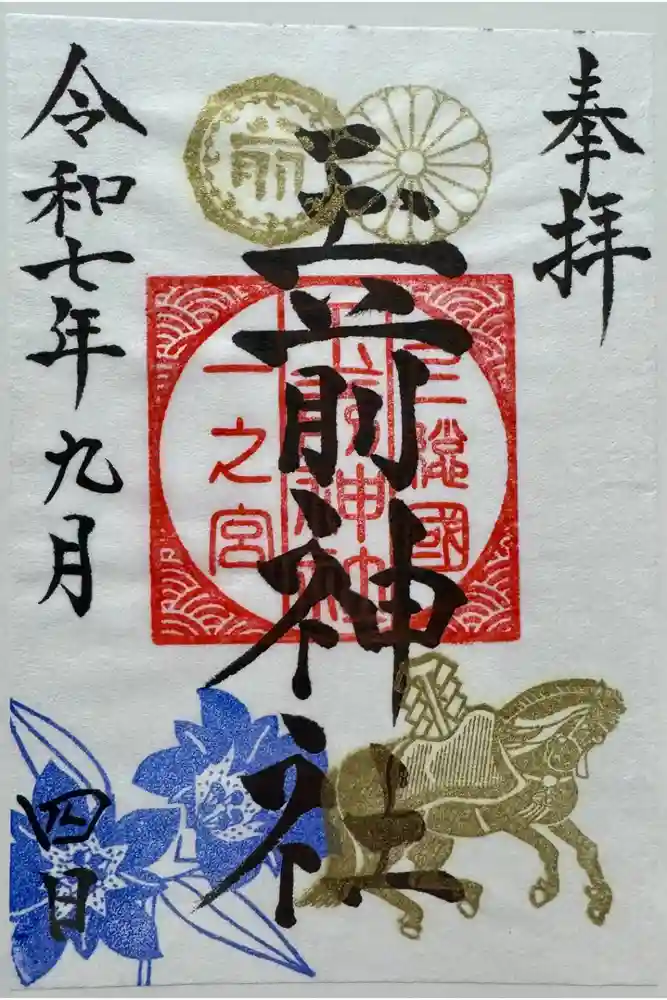 奉拝
上總國
玉前神社
一之宮
前
玉前神社
令和七年九月
四日